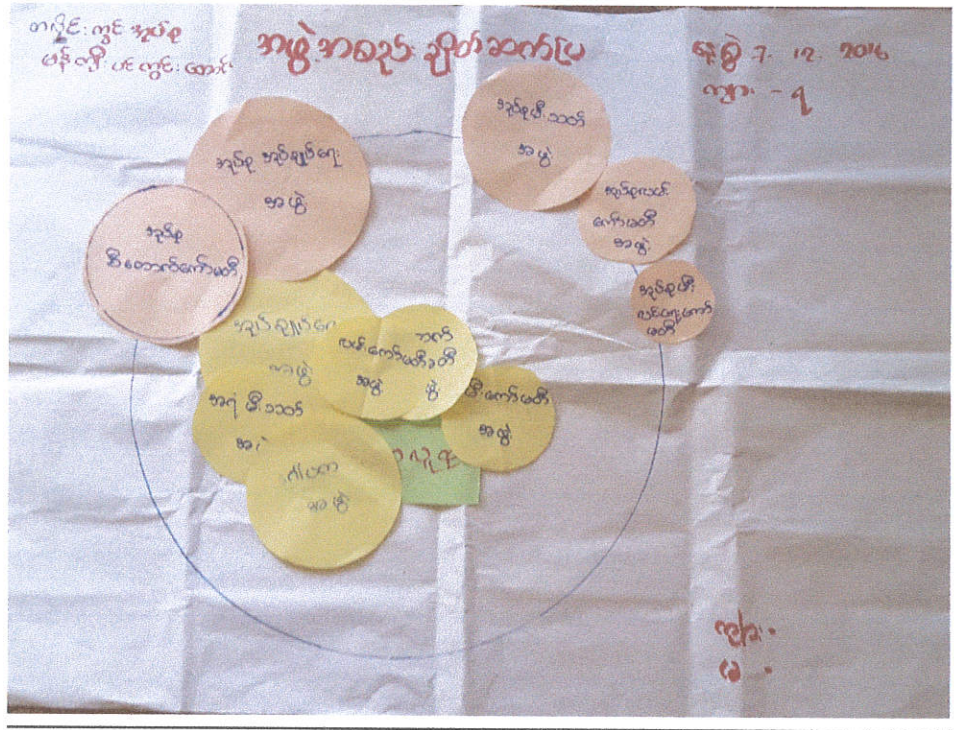 တလိုင်းကွင်း အုပ်စု
မန်ကျီးပင်ကွင်း တောင်
အဖွဲ့ အစည်း ချိတ်ဆက်ပြ
နေ့စွဲ 7. 12. 2016
ကျား - ၇
အုပ်စု အုပ်ချုပ်ရေး
အဖွဲ့
အုပ်စု
စီထောက်ကော်မတီ
အုပ်စုမီးသတ်
အဖွဲ့
အုပ်စုလမ်း
ကော်မတီ
အဖွဲ့
အုပ်စုမီး
လင်းရေးကော်
မတီ
အုပ်ချုပ်ရေး
အဖွဲ့
လမ်းကော်မတီ
အဖွဲ့
ဘက်
မီးကော်မတီ
အဖွဲ့
အရံ မီးသတ်
ဂေါပက
အဖွဲ့
ကျား -
မ -